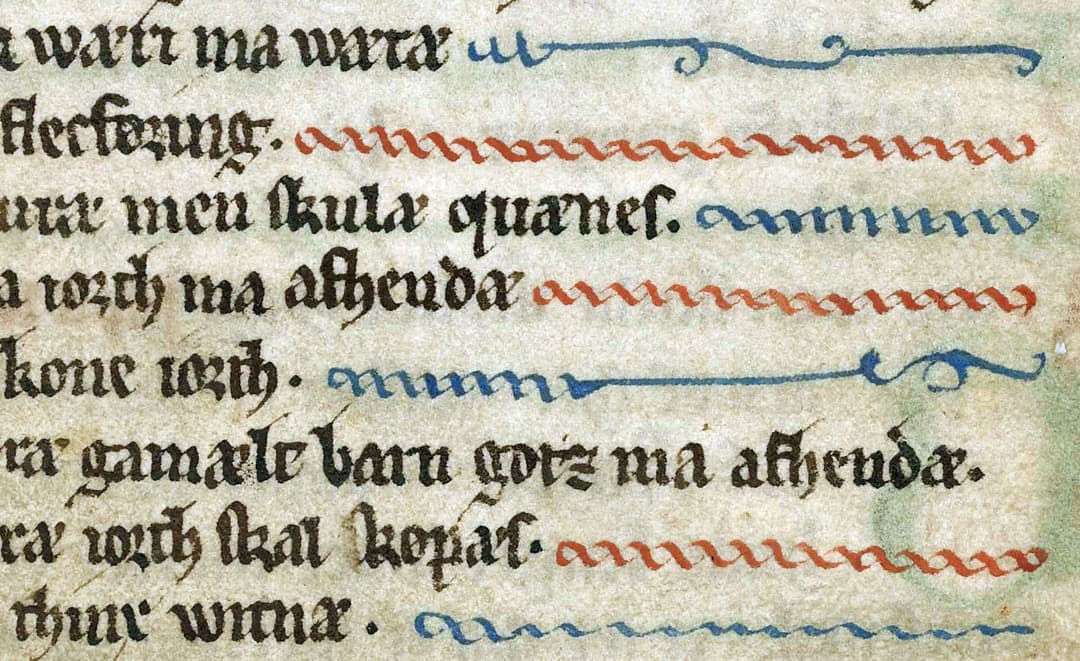 ma wæræ
flecføring.
uræ men skulæ quænes.
a iorth ma afhendæ
kone iorth.
ræ gamælt barn gotz ma afhendæ.
ræ iorth skal kopæs.
witnæ.